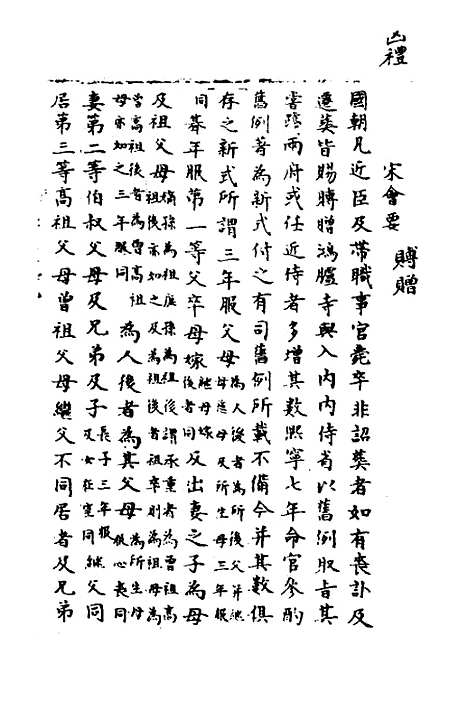 凶禮
宋會要
賻贈
國朝凡近臣及帶職事官薨卒非詔葬者如有喪訃及
遷葬皆賜賻贈鴻臚寺與入內內侍省以舊例取旨其
嘗踐兩府或任近侍者多增其數熙寧七年命官參酌
舊例著為新式付之有司舊例所載不備今并其數俱
存之新式所謂三年服父母為人後者為所後父并繼母慈母及所生母三年服
同朞年服第一等父卒母嫁繼母嫁後者同及出妻之子為母
及祖父母嫡孫為祖庶孫為祖後謂承重者為曾祖高祖後亦如之及為祖後者祖卒則為祖母為
曾高祖後者為曾高祖母亦如之三年服同為人後者為其父母為所生母服心喪同
妻第二等伯叔父母及兄弟及子長子三年報及女在室同繼父同
居第三等高祖父母曾祖父母繼父不同居者及兄弟